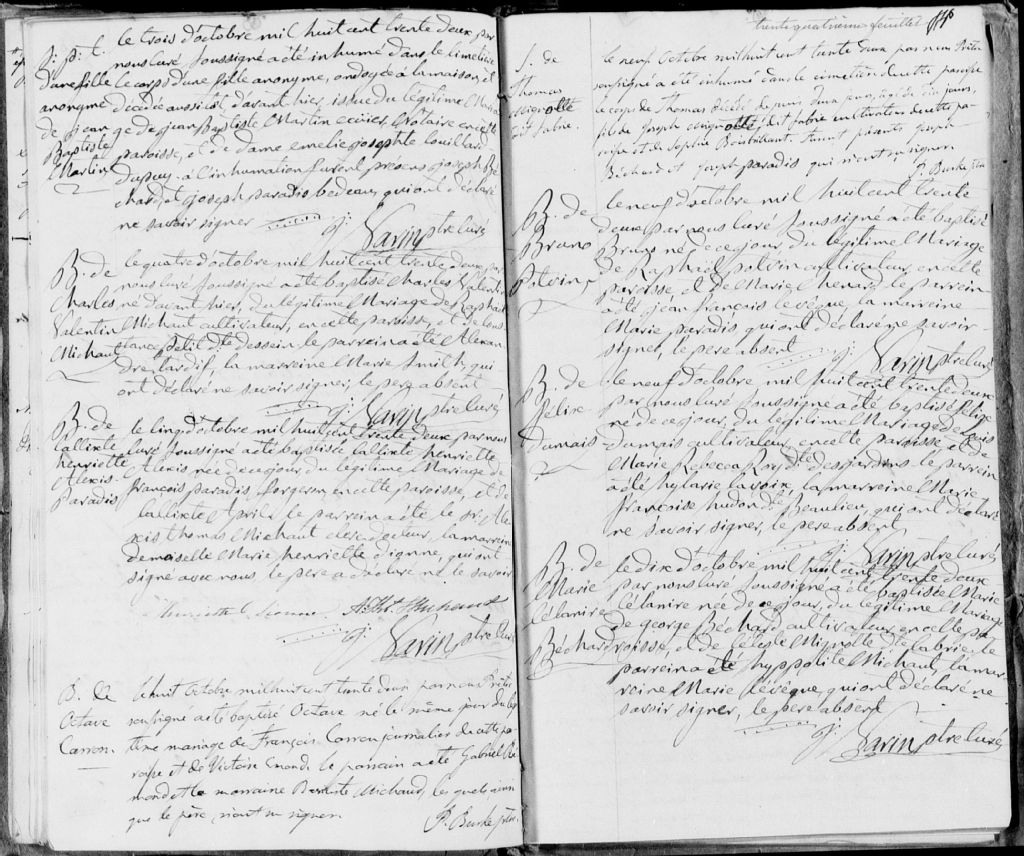 S. d. l.
d'une fille
anonyme
de jean
Baptiste
Martin
le trois d'octobre mil huit cent trente deux, par
nous curé soussigné a été inhumé dans le cimetière
le corps d'une fille anonyme, ondoyée à la maison, et
décédée aussitôt d'avant hier, issue du légitime Maria
ge de jean Baptiste Martin ecuier, Notaire en cette
paroisse, et de dame emelie josephte Couillard
Dupuy. à l'inhumation furent présens joseph Bé
chard et joseph paradis bedeau, qui ont déclaré
ne savoir signer
j: Varin ptre curé
B. de
Charles
Valentin
Michaut
le quatre d'octobre mil huit cent trente deux, par
nous curé soussigné a été baptisé Charles Valentin
né d'avant hier, du légitime Mariage de Raphael
Michaut cultivateur, en cette paroisse, et de Cons
tance petit dte dessein. le parrein a été Alexan
dre tardif, la marreine Marie Smith, qui
ont déclaré ne savoir signer, le pere absent
j: Varin ptre curé
B. de
Calixte
henriette
Alexis
Paradis
le cinq d'octobre mil huit cent trente deux par nous
curé soussigné a été baptisée Calixte henriette
Alexis née de ce jour, du légitime Mariage de
françois paradis, forgeron, en cette paroisse, et de
Calixte April. le parrein a été le sr. Ale
xis thomas Michaut elev. docteur, la marreine
demoiselle Marie henriette dionne, qui ont
signé avec nous, le pere a déclaré ne le savoir
Henriette Dionne
j: Varin ptre curé
B. de
Octave
Carron
le huit Octobre mil huit cent trente deux par nous Prêtre
soussigné a été baptisé Octave né le même jour du légi
time mariage de François Carron journalier de cette pa
roisse et de Victoire Emond. le parrain a été Gabriel
la marraine Michaud, les quels ainsi
que le père, n'ont su signer.
P. Burke ptre.
trente quatrième feuillet
S. de
Thomas
Mignotté
dit Labrie.
le neuf Octobre mil huit cent trente deux par nous Prêtre
soussigné a été inhumé dans le cimetière de cette paroisse
le corps de Thomas décédé depuis deux jours, agé de dix jours,
fils de Joseph Mignotté dit Labrie cultivateur de cette pa-
roisse et de Sophie Boutillant. Furent présents Joseph
Béchard et Joseph paradis qui n'ont su signer.
P. Burke ptre
B. de
Bruno
Pitvin
le neuf d'octobre mil huit cent trente
deux par nous curé soussigné a été baptisé
Bruno né de ce jour, du légitime Mariage
de Raphael pitvin cultivateur, en cette
paroisse, et de Marie Menard. le parrein
a été jean françois levêque, la marreine
Marie paradis qui ont déclaré ne savoir
signer, le pere absent
j: Varin ptre curé
B. de
felix
dumais
le neuf d'octobre mil huit cent trente deux
par nous curé soussigné a été baptisé felix
né de ce jour, du légitime Mariage de
dumais cultivateur, en cette paroisse, et de
Marie Rebecca Roy dte desjardins. le parrein
a été hylarie lavoix, la marreine Marie
françoise hudon dte Beaulieu, qui ont déclaré
ne savoir signer, le pere absent
j: Varin ptre curé
B. de
Marie
Célanire
Béchard
le dix d'octobre mil huit cent trente deux
par nous curé soussigné a été baptisée Marie
Célanire née de ce jour, du légitime Mariage
de george Béchard cultivateur, en cette pa
roisse, et de Céleste Mignotte dte labrie. le
parrein a été hyppolite Michaut, la mar
reine Marie levêque, qui ont déclaré ne
savoir signer, le pere absent
j: Varin ptre curé